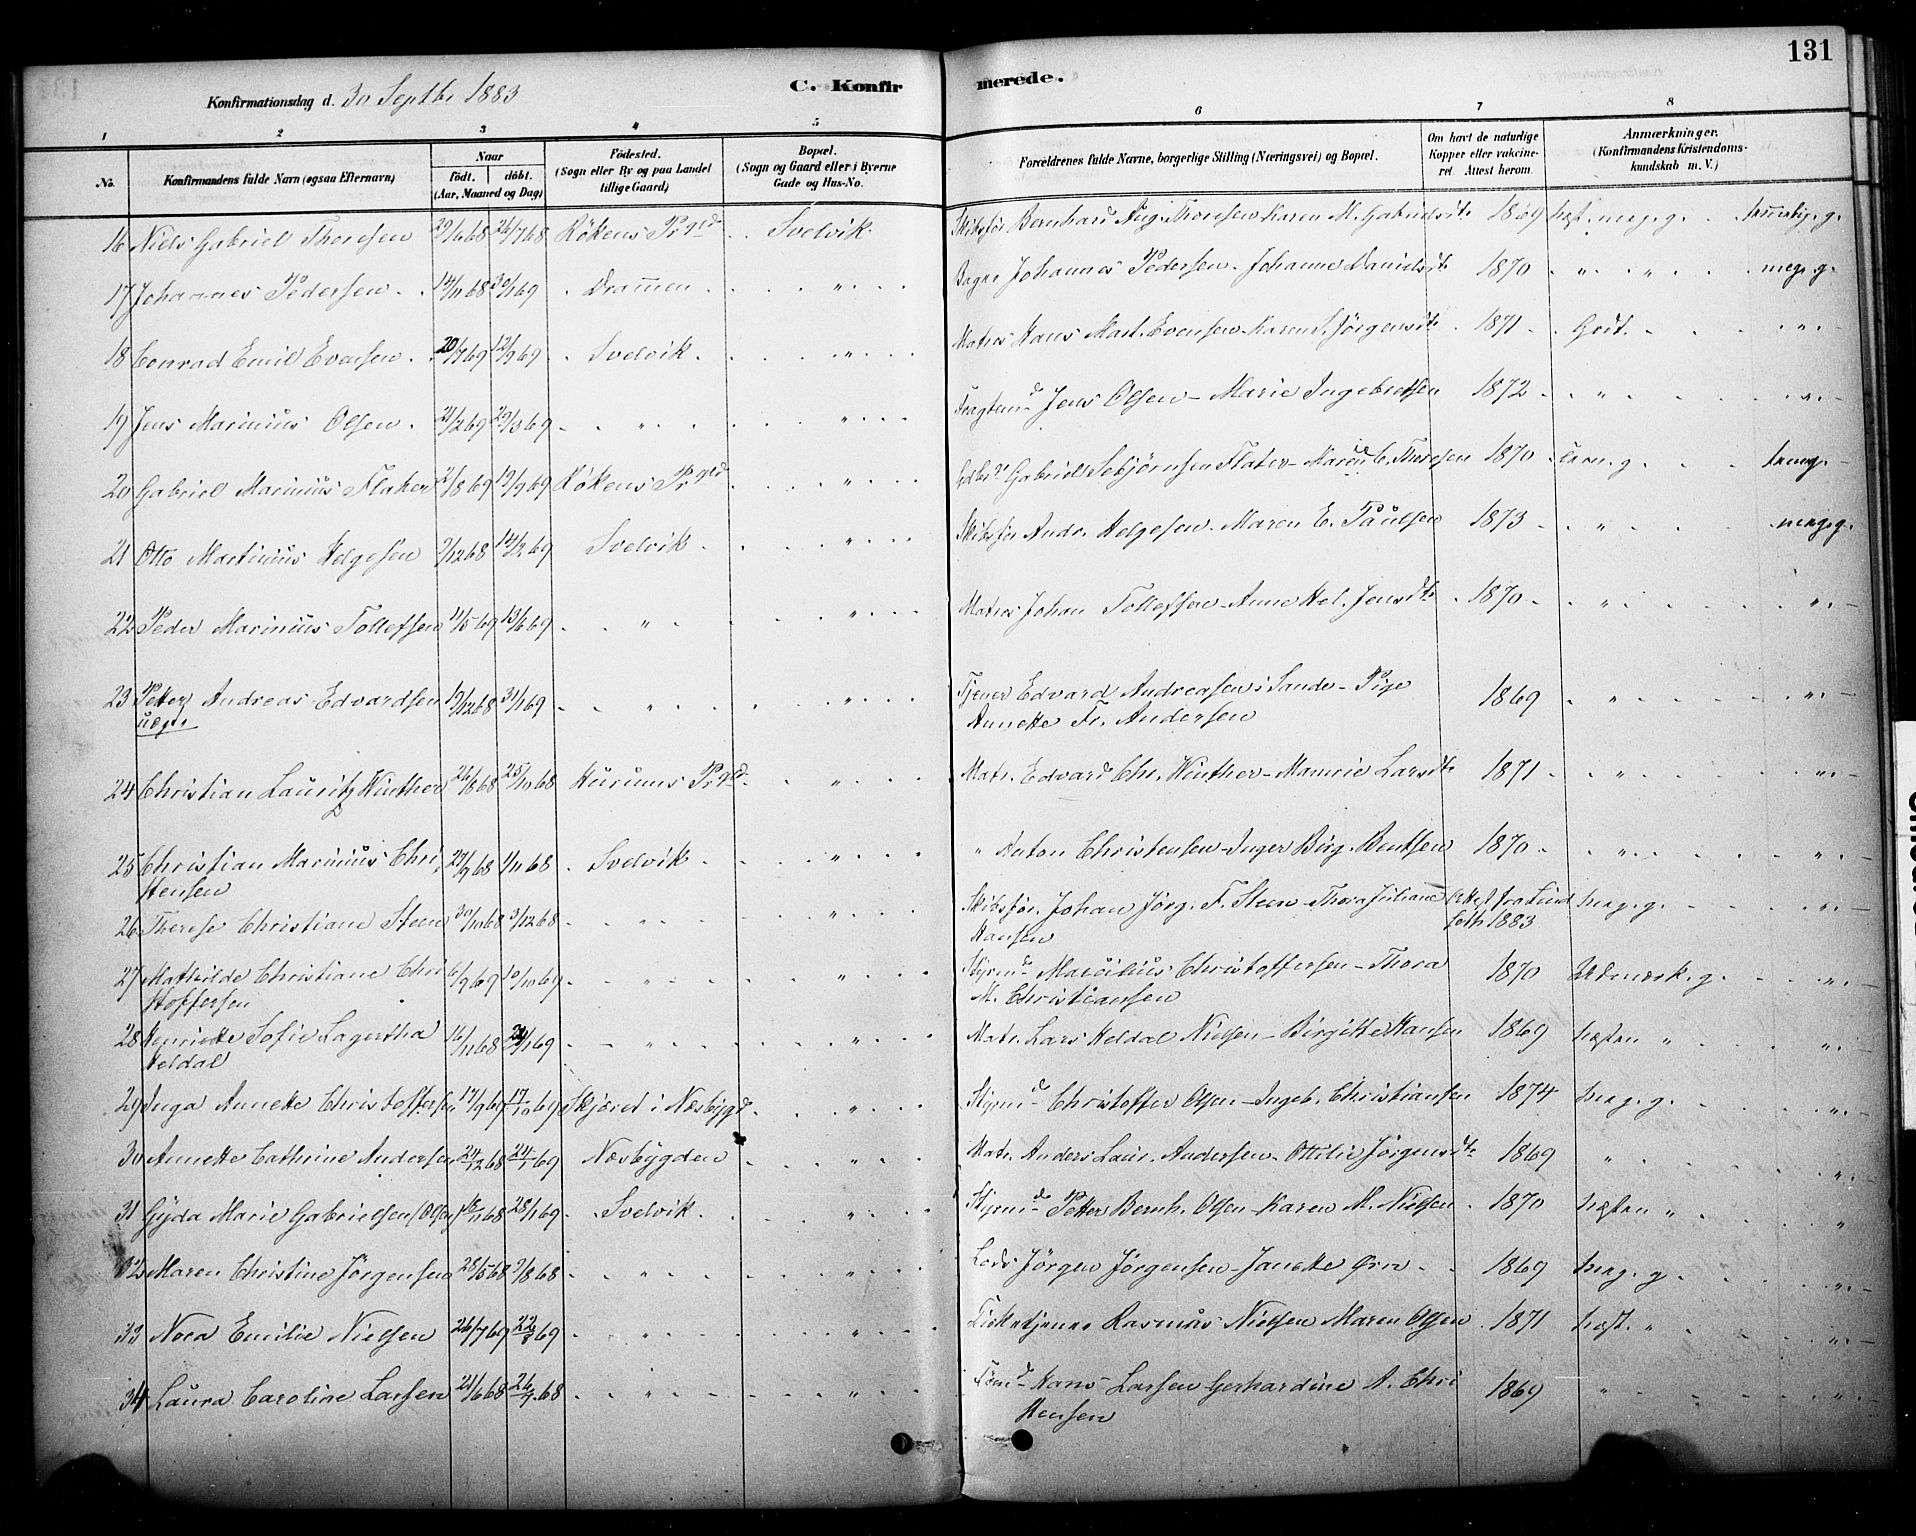 131
C. Konfirmerede.
Konfirmationsdag d. 30 Septbr 1883
1 2 3 4 5 6 7 8
No. Konfirmandens fulde Navn (ogsaa Efternavn) Naar født. døbt. (Aar, Maaned og Dag) Fødested. (Sogn eller By og paa Landet tillige Gaard) Bopæl. (Sogn og Gaard eller i Byerne Gade og Hus-No. Forældrenes fulde Navne, borgerlige Stilling (Næringsvei) og Bopæl. Om havt de naturlige Kopper eller vakcineret. Attest herom. Anmærkninger. (Konfirmandens Kristendomskundskab m. V.)
16 Niels Gabriel Thoresen 29/6 68 26/7 68 Røkens Prgld Svelvik Skibsfør Bernhard Aug. Thoresen Karen M. Gabrielsdt. 1869 næst. meg. g.
17 Johannes Pedersen 14/11 68 30/1 69 Drammen " Johannes Pedersen Johanne Danielsdt 1870 " " meg. g.
18 Conrad Emil Evensen 20/7 69 12/9 69 Svelvik " Matros Hans Mart. Evensen Karen S. Jørgensdt. 1871 Godt "
19 Jens Marinius Olsen 21/2 69 29/3 69 " " Jens Olsen Marie Ingebretsen 1872 " "
20 Gabriel Marinius Flaker 2/8 69 19/9 69 Røkens Prgld " Gabriel Flater Maren C. Thoresen 1870 temg.
21 Otto Martinius Helgesen 9/12 68 14/2 69 Svelvik " Skibsfør Andr. Helgesen Maren E. Paulsen 1873 " meg. g.
22 Peder Marinius Tollefsen 11/5 69 13/6 69 " " Matros Johan Tollefsen Anne Hel. Jensdt. 1870 " "
23 Petter Andreas Edvardsen 19/12 68 31/1 69 " " Tjener Edvard Andreasen i Sande Pige 1869 " "
uægte Annette Fr. Andersen
24 Christian Lauritz Winther 26/8 68 25/10 68 Hurums Prgld " Matr. Edvard Chr. Winther Larsdt. 1871 " "
25 Christian Marinius Chri 29/9 68 1/11 68 Svelvik " " Anton Christensen Inger Birg. Bentsen 1870 " "
stensen
26 Therese Christiane Steen 30/10 68 3/12 68 " " Skibsfør. Johan Jørg. F. Steen Thora Juliane Attest fra meg. g. "
Hansen 1883
27 Mathilde Christiane Chri 6/9 69 10/10 69 " " Styrmd Christoffersen Thora 1870 Udmærk. g "
stoffersen M. Christiansen
28 Henriette Sofie Lagertha 16/11 68 24/1 69 " " Matr. Lars Heldal Nielsen Birgitte Hansen 1869 næsten " "
Heldal
29 Inga Annette Christoffersen 17/9 69 17/10 69 i Næsbygd. " Styrmd Christoffer Olsen Ingeb. Christiansen 1874 meg. g. "
30 Annette Cathrine Andersen 24/12 68 24/1 69 Næsbygden " Matr. Anders Laur. Andersen Ottilie Jørgensdt. 1869 " "
31 Gyda Marie Gabrielsen (Olsen) 16/11 68 28/1 69 Svelvik " Styrmd Petter Bernh. Olsen Karen M. Nielsen 1870 næsten " "
32 Maren Christine Jørgensen 28/5 68 9/8 68 " " Lods Jørgen Jørgensen Janette 1869 meg. g. "
33 Nora Emilie Nielsen 26/7 69 22/8 69 " " Rasmus Nielsen Maren Olsen 1871 næst. " "
34 Laura Caroline Larsen 21/6 68 26/7 68 " " Tømd Hans Larsen Gerhardine A. Chri 1869 " "
stensen